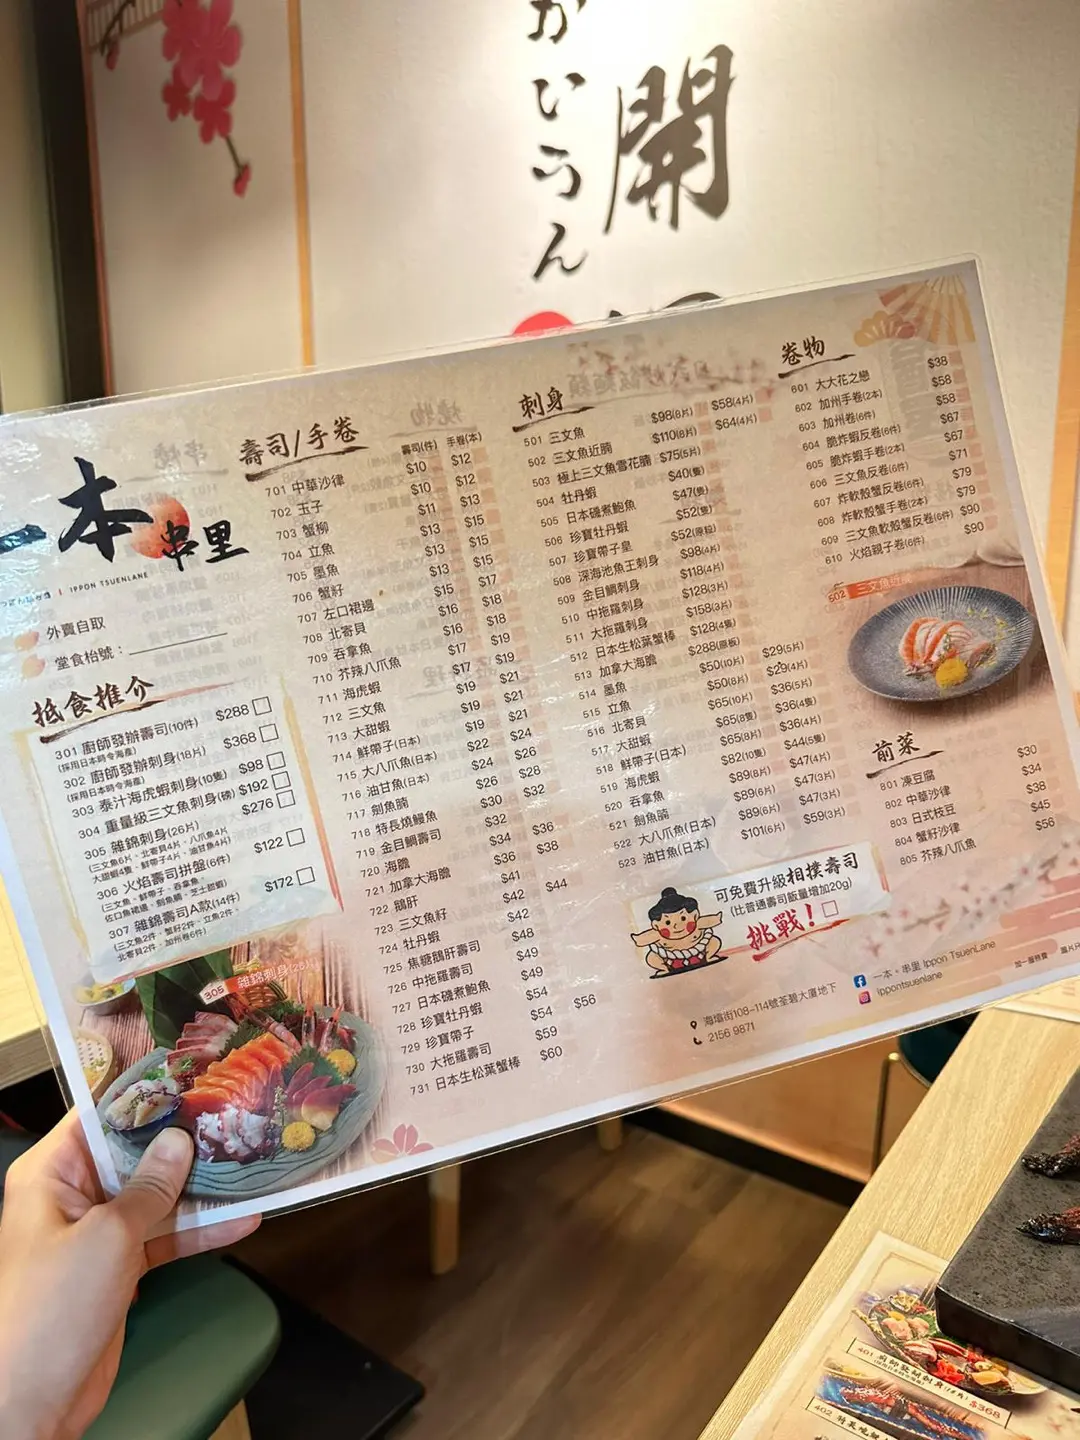 かいらん
開
一本
串里
IPPON TSUENLANE
外賣自取
堂食枱號：
抵食推介
301 廚師發辦壽司(10件) $288
(採用日本時令海產)
302 廚師發辦刺身(18片) $368
(採用日本時令海產)
303 泰汁海虎蝦刺身(10隻) $98
304 重量級三文魚刺身(磅) $192
305 雜錦刺身(26片) $276
(三文魚6片、北寄貝4片、八爪魚4片、
大甜蝦4隻、鮮帶子4片、油甘魚4片)
306 火焰壽司拼盤(6件) $122
(三文魚、鮮帶子、吞拿魚、
左口魚裙邊、劍魚腩、芝士甜蝦)
307 雜錦壽司A款(14件) $172
(三文魚2件、蟹籽2件、立魚2件、
北寄貝2件、加州卷6件)
305 雜錦刺身(26片)
壽司/手卷
壽司(件) 手卷(本)
701 中華沙律 $10 $12
702 玉子 $10 $12
703 蟹柳 $11 $13
704 立魚 $13 $15
705 墨魚 $13 $15
706 蟹籽 $13 $15
707 左口裙邊 $15 $17
708 北寄貝 $16 $18
709 吞拿魚 $16 $18
710 芥辣八爪魚 $17 $19
711 海虎蝦 $17 $19
712 三文魚 $19 $21
713 大甜蝦 $19 $21
714 鮮帶子(日本) $19 $21
715 大八爪魚(日本) $22 $24
716 油甘魚(日本) $24 $26
717 劍魚腩 $26 $28
718 特長燒鰻魚 $30 $32
719 金目鯛壽司 $32
720 海膽 $34 $36
721 加拿大海膽 $36 $38
722 鵝肝 $41
723 三文魚籽 $42 $44
724 牡丹蝦 $42
725 焦糖鵝肝壽司 $48
726 中拖羅壽司 $49
727 日本磯煮鮑魚 $49
728 珍寶牡丹蝦 $54
729 珍寶帶子 $54 $56
730 大拖羅壽司 $59
731 日本生松葉蟹棒 $60
刺身
501 三文魚 $98(8片) $58(4片)
502 三文魚近腩 $110(8片) $64(4片)
503 極上三文魚雪花腩 $75(5片)
504 牡丹蝦 $40(隻)
505 日本磯煮鮑魚 $47(隻)
506 珍寶牡丹蝦 $52(隻)
507 珍寶帶子皇 $52(原粒)
508 深海池魚王刺身 $98(4片)
509 金目鯛刺身 $118(4片)
510 中拖羅刺身 $128(3片)
511 大拖羅刺身 $158(3片)
512 日本生松葉蟹棒 $128(4隻)
513 加拿大海膽 $288(原板)
514 墨魚 $50(10片) $29(5片)
515 立魚 $50(8片) $29(4片)
516 北寄貝 $65(10片) $36(5片)
517 大甜蝦 $65(8隻) $36(4隻)
518 鮮帶子(日本) $65(8片) $36(4片)
519 海虎蝦 $82(10隻) $44(5隻)
520 吞拿魚 $89(8片) $47(4片)
521 劍魚腩 $89(6片) $47(3片)
522 大八爪魚(日本) $89(6片) $47(3片)
523 油甘魚(日本) $101(6片) $59(3片)
可免費升級相撲壽司
(比普通壽司飯量增加20g)
挑戰！
卷物
601 大大花之戀 $38
602 加州手卷(2本) $58
603 加州卷(6件) $58
604 脆炸蝦反卷(6件) $67
605 脆炸蝦手卷(2本) $67
606 三文魚反卷(6件) $71
607 炸軟殼蟹反卷(6件) $79
608 炸軟殼蟹手卷(2本) $79
609 三文魚軟殼蟹反卷(6件) $90
610 火焰親子卷(6件) $90
502 三文魚近腩
前菜
801 凍豆腐 $30
802 中華沙律 $34
803 日式枝豆 $38
804 蟹籽沙律 $45
805 芥辣八爪魚 $56
海壩街108-114號荃碧大廈地下
2156 9871
一本。串里 Ippon TsuenLane
ippontsuenlane
加一服務費
401 廚師發辦刺身
$368
402